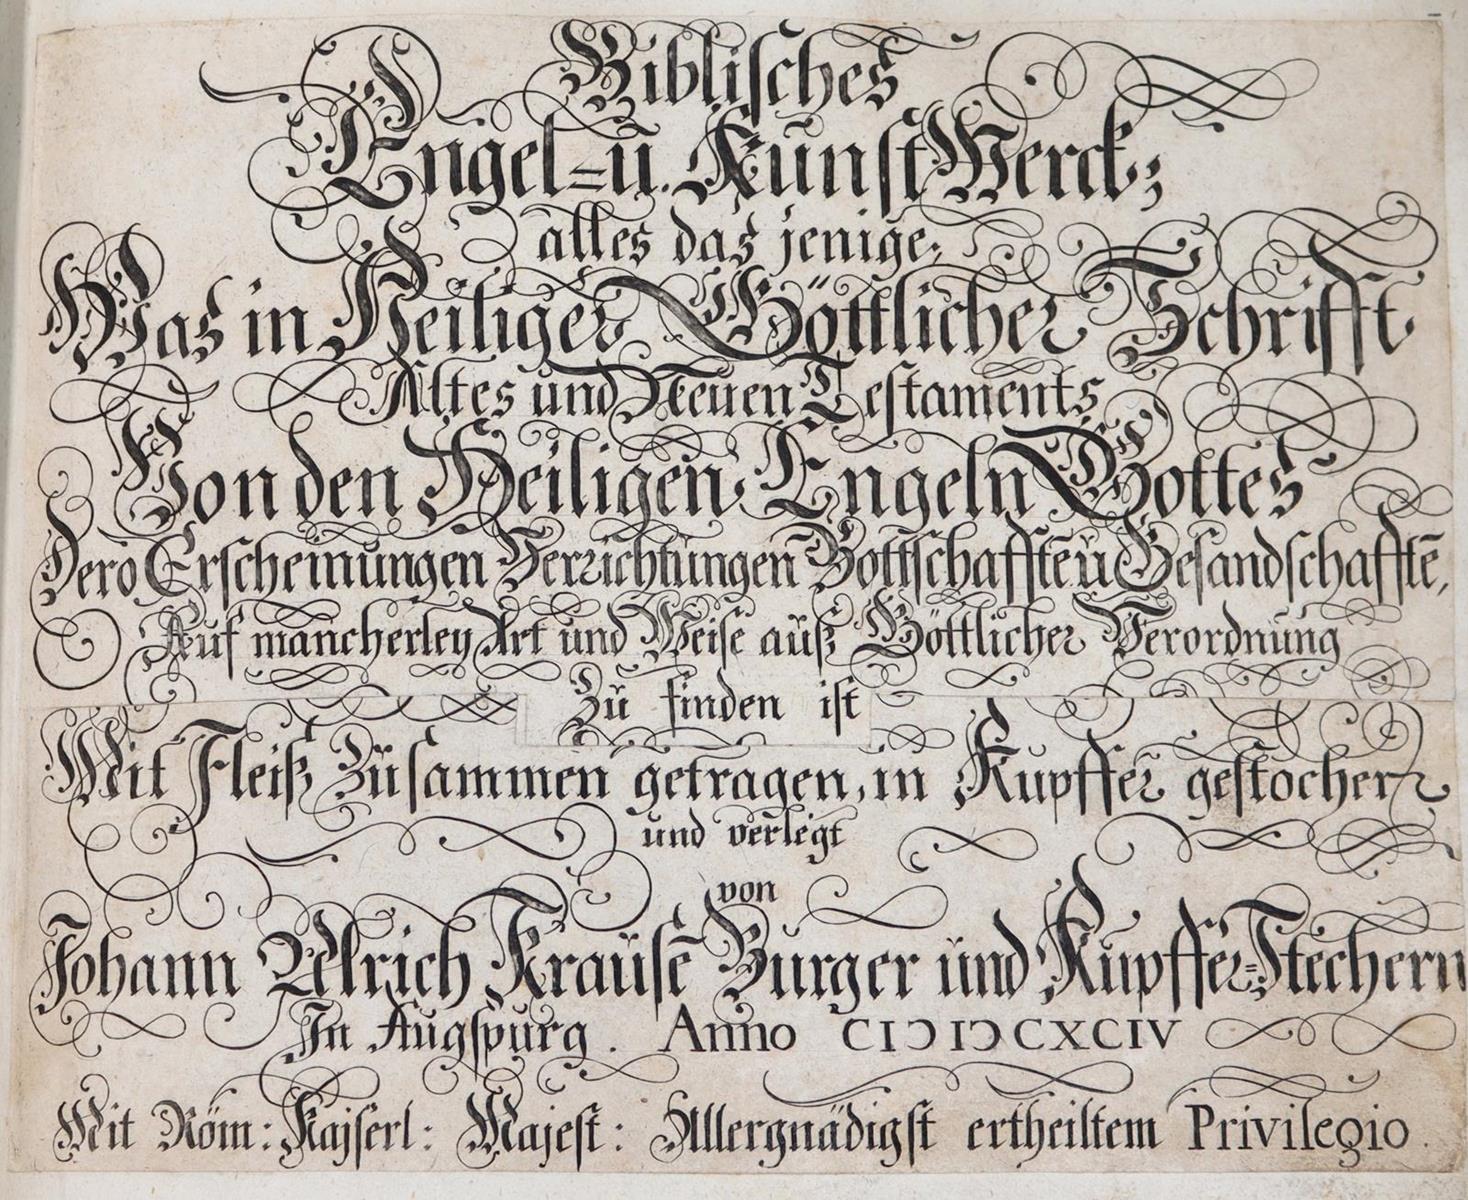 Biblisches
Engel=u. Kunst Werck;
alles das jenige,
Was in Heiliger Göttlicher Schrifft
Altes und Neuen Testaments
Von den Heiligen Engeln Gottes
Dero Erscheinungen Verrichtungen Bottschafftē ū Gesandschafftē,
Auf mancherley Art und Weise auß Göttlicher Verordnung
Zu finden ist
Mit Fleiß Zusammen getragen, in Kupffer gestochen
und verlegt
von
Johann Ulrich Krausē Burger und Kupffer=Stechern
In Augspurg. Anno CIƆ IƆ CXCIV
Mit Röm: Kajserl: Majest: Allergnädigst ertheiltem Privilegio.